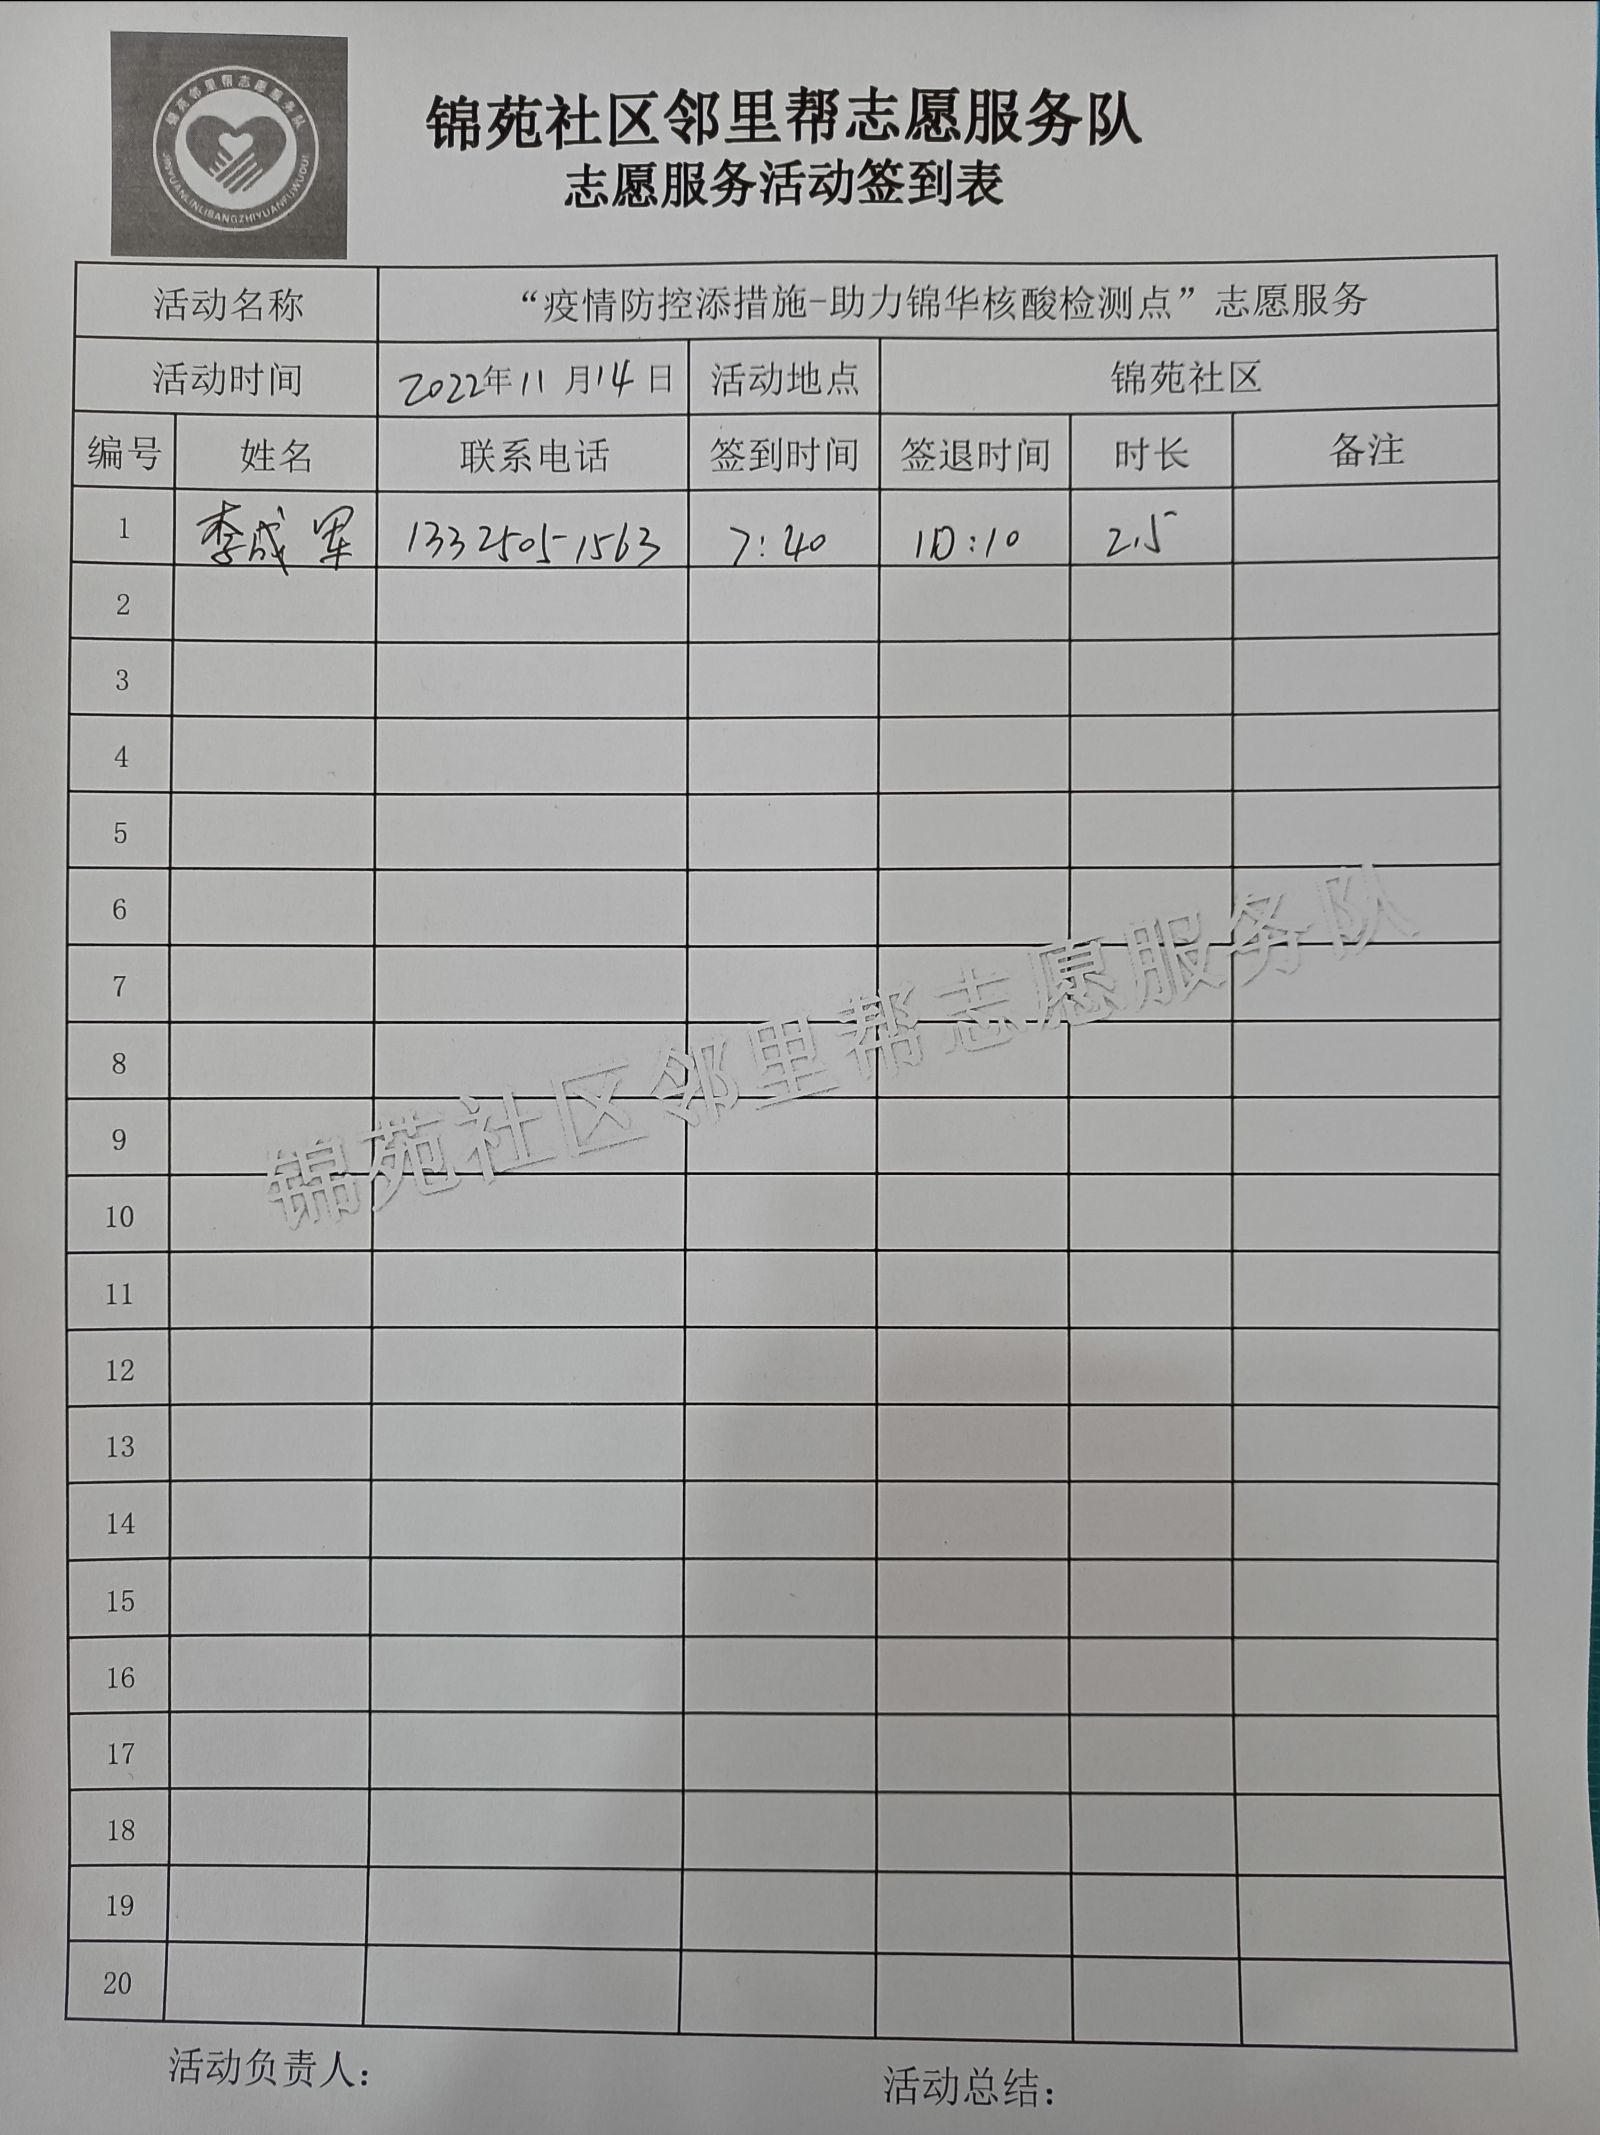 锦苑邻里帮志愿服务队
JINYUANLINLIBANGZHIYUANFUWUDUI
锦苑社区邻里帮志愿服务队
志愿服务活动签到表
活动名称 “疫情防控添措施-助力锦华核酸检测点”志愿服务
活动时间 2022年11月14日 活动地点 锦苑社区
编号 姓名 联系电话 签到时间 签退时间 时长 备注
1 李成军 13325051563 7:40 10:10 2.5
2
3
4
5
6
7
8
9
10
11
12
13
14
15
16
17
18
19
20
锦苑社区邻里帮志愿服务队
活动负责人： 活动总结：